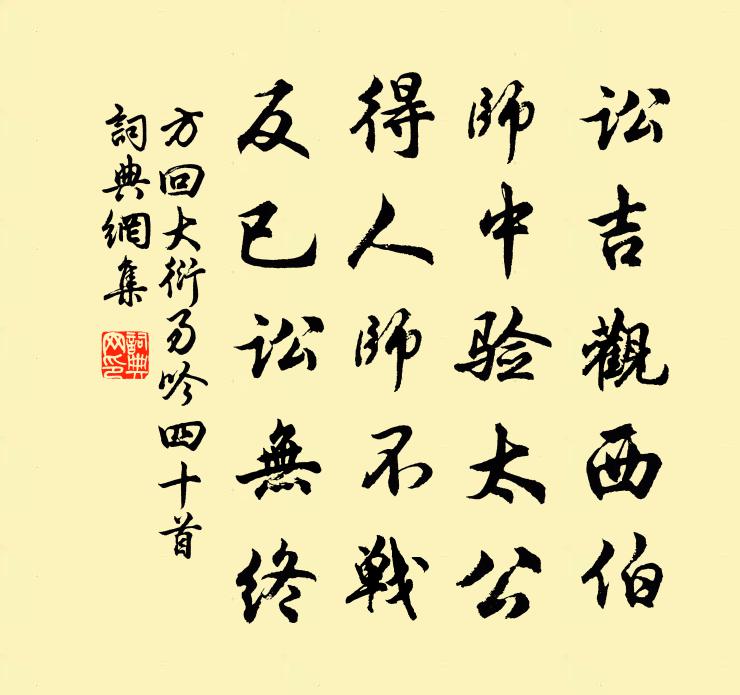 讼吉觀西伯
師中验太公
得人師不戰
反已讼無終
方回大衍易吟四十首
詞典網集
詞典网印